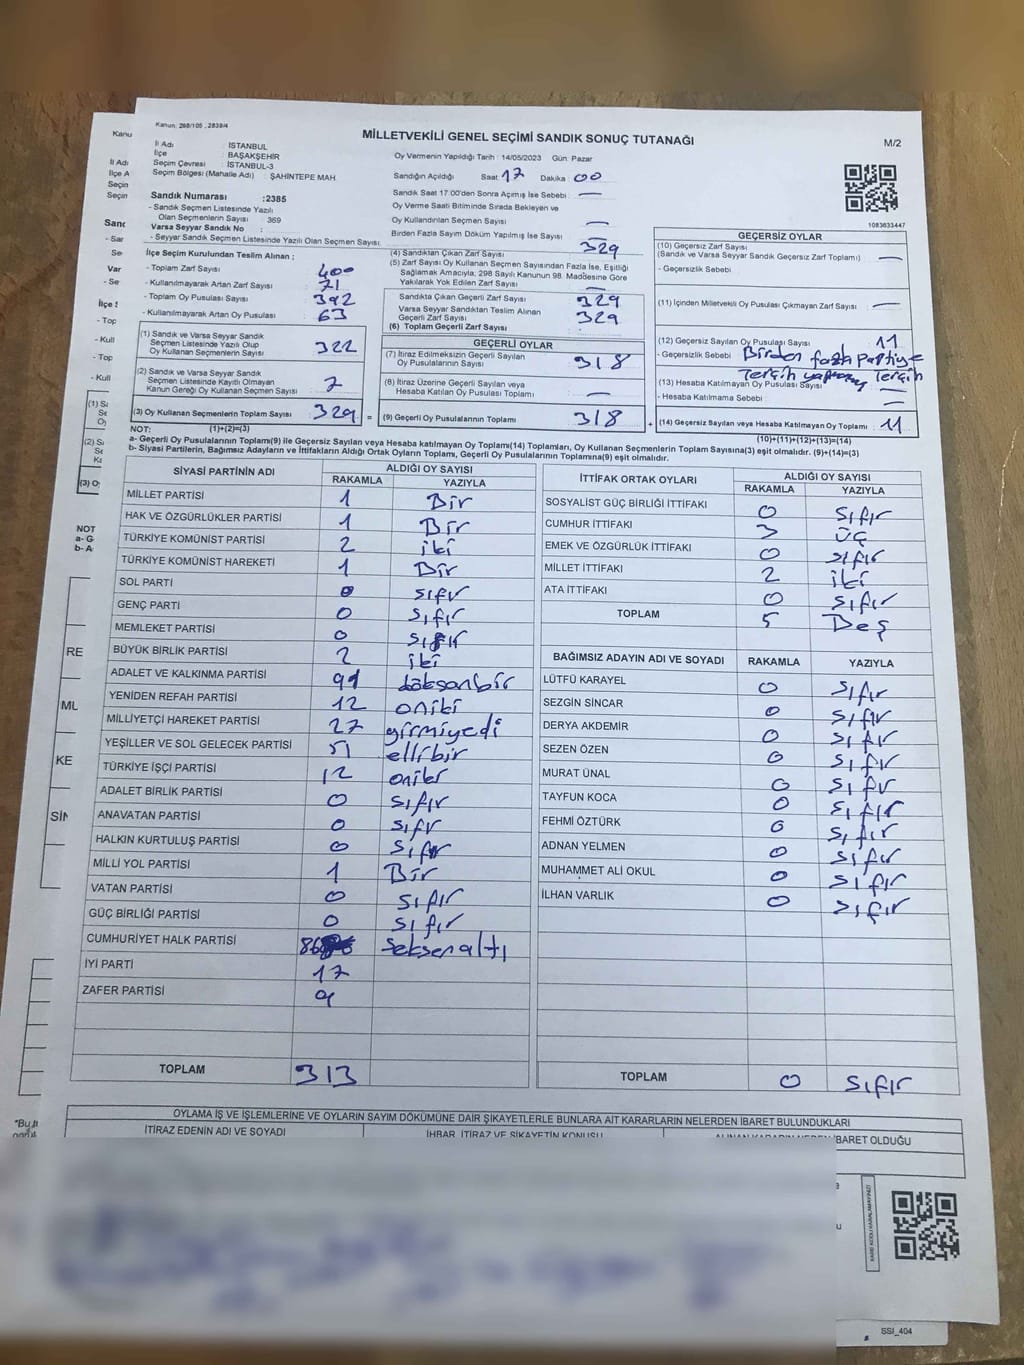 Kanun: 298/105 , 2839/4
MİLLETVEKİLİ GENEL SEÇİMİ SANDIK SONUÇ TUTANAĞI
M/2
İl Adı : İSTANBUL
İlçe : BAŞAKŞEHİR
Seçim Çevresi : İSTANBUL-3
Seçim Bölgesi (Mahalle Adı) : ŞAHİNTEPE MAH.
Sandık Numarası :2385
- Sandık Seçmen Listesinde Yazılı
Olan Seçmenlerin Sayısı : 369
Varsa Seyyar Sandık No :
- Seyyar Sandık Seçmen Listesinde Yazılı Olan Seçmen Sayısı:
Oy Vermenin Yapıldığı Tarih : 14/05/2023 Gün: Pazar
Sandığın Açıldığı Saat: 17 Dakika: 00
Sandık Saat 17:00'den Sonra Açımış İse Sebebi : —
Oy Verme Saati Bitiminde Sırada Bekleyen ve
Oy Kullandırılan Seçmen Sayısı : —
Birden Fazla Sayım Döküm Yapılmış İse Sayısı : —
1083633447
İlçe Seçim Kurulundan Teslim Alınan ;
- Toplam Zarf Sayısı : 400
- Kullanılmayarak Artan Zarf Sayısı : 71
- Toplam Oy Pusulası Sayısı : 392
- Kullanılmayarak Artan Oy Pusulası : 63
(1) Sandık ve Varsa Seyyar Sandık
Seçmen Listesinde Yazılı Olup
Oy Kullanan Seçmenlerin Sayısı : 322
(2) Sandık ve Varsa Seyyar Sandık
Seçmen Listesinde Kayıtlı Olmayan
Kanun Gereği Oy Kullanan Seçmen Sayısı : 7
(3) Oy Kullanan Seçmenlerin Toplam Sayısı : 329
(4) Sandıktan Çıkan Zarf Sayısı : 329
(5) Zarf Sayısı Oy Kullanan Seçmen Sayısından Fazla İse, Eşitliği
Sağlamak Amacıyla, 298 Sayılı Kanunun 98. Maddesine Göre
Yakılarak Yok Edilen Zarf Sayısı : —
Sandıkta Çıkan Geçerli Zarf Sayısı : 329
Varsa Seyyar Sandıktan Teslim Alınan
Geçerli Zarf Sayısı : 329
(6) Toplam Geçerli Zarf Sayısı :
GEÇERLİ OYLAR
(7) İtiraz Edilmeksizin Geçerli Sayılan
Oy Pusulalarının Sayısı : 318
(8) İtiraz Üzerine Geçerli Sayılan veya
Hesaba Katılan Oy Pusulası Toplamı : —
= (9) Geçerli Oy Pusulalarının Toplamı : 318
GEÇERSİZ OYLAR
(10) Geçersiz Zarf Sayısı
(Sandık ve Varsa Seyyar Sandık Geçersiz Zarf Toplamı) : —
- Geçersizlik Sebebi :
(11) İçinden Milletvekili Oy Pusulası Çıkmayan Zarf Sayısı : —
(12) Geçersiz Sayılan Oy Pusulası Sayısı : 11
- Geçersizlik Sebebi : Birden fazla Partiye
Tercih Tercih
(13) Hesaba Katılmayan Oy Pusulası Sayısı : —
- Hesaba Katılmama Sebebi : —
+ (14) Geçersiz Sayılan veya Hesaba Katılmayan Oy Toplamı : 11
NOT: (1)+(2)=(3) (10)+(11)+(12)+(13)=(14)
a- Geçerli Oy Pusulalarının Toplamı(9) ile Geçersiz Sayılan veya Hesaba katılmayan Oy Toplam(14) Toplamları, Oy Kullanan Seçmenlerin Toplam Sayısına(3) eşit olmalıdır. (9)+(14)=(3)
b- Siyasi Partilerin, Bağımsız Adayların ve İttifakların Aldığı Ortak Oyların Toplamı, Geçerli Oy Pusulalarının Toplamına(9) eşit olmalıdır.
SİYASİ PARTİNİN ADI ALDIĞI OY SAYISI
RAKAMLA YAZIYLA
MİLLET PARTİSİ 1 Bir
HAK VE ÖZGÜRLÜKLER PARTİSİ 1 Bir
TÜRKİYE KOMÜNİST PARTİSİ 2 iki
TÜRKİYE KOMÜNİST HAREKETİ 1 Bir
SOL PARTİ 0 sıfır
GENÇ PARTİ 0 sıfır
MEMLEKET PARTİSİ 0 sıfır
BÜYÜK BİRLİK PARTİSİ 2 iki
ADALET VE KALKINMA PARTİSİ 91 doksanbir
YENİDEN REFAH PARTİSİ 12 oniki
MİLLİYETÇİ HAREKET PARTİSİ 27 yirmiyedi
YEŞİLLER VE SOL GELECEK PARTİSİ 51 ellibir
TÜRKİYE İŞÇİ PARTİSİ 12 oniki
ADALET BİRLİK PARTİSİ 0 sıfır
ANAVATAN PARTİSİ 0 sıfır
HALKIN KURTULUŞ PARTİSİ 0 sıfır
MİLLİ YOL PARTİSİ 1 Bir
VATAN PARTİSİ 0 sıfır
GÜÇ BİRLİĞİ PARTİSİ 0 sıfır
CUMHURİYET HALK PARTİSİ 86 seksenaltı
İYİ PARTİ 17
ZAFER PARTİSİ 9
TOPLAM 313
İTTİFAK ORTAK OYLARI ALDIĞI OY SAYISI
RAKAMLA YAZIYLA
SOSYALİST GÜÇ BİRLİĞİ İTTİFAKI 0 sıfır
CUMHUR İTTİFAKI 3 üç
EMEK VE ÖZGÜRLÜK İTTİFAKI 0 sıfır
MİLLET İTTİFAKI 2 iki
ATA İTTİFAKI 0 sıfır
TOPLAM 5 Beş
BAĞIMSIZ ADAYIN ADI VE SOYADI RAKAMLA YAZIYLA
LÜTFÜ KARAYEL 0 sıfır
SEZGİN SİNCAR 0 sıfır
DERYA AKDEMİR 0 sıfır
SEZEN ÖZEN 0 sıfır
MURAT ÜNAL 0 sıfır
TAYFUN KOCA 0 sıfır
FEHMİ ÖZTÜRK 0 sıfır
ADNAN YELMEN 0 sıfır
MUHAMMET ALİ OKUL 0 sıfır
İLHAN VARLIK 0 sıfır
TOPLAM 0 sıfır
OYLAMA İŞ VE İŞLEMLERİNE VE OYLARIN SAYIM DÖKÜMÜNE DAİR ŞİKAYETLERLE BUNLARA AİT KARARLARIN NELERDEN İBARET BULUNDUKLARI
İTİRAZ EDENİN ADI VE SOYADI İHBAR, İTİRAZ VE ŞİKAYETİN KONUSU İBARET OLDUĞU
SSI_404